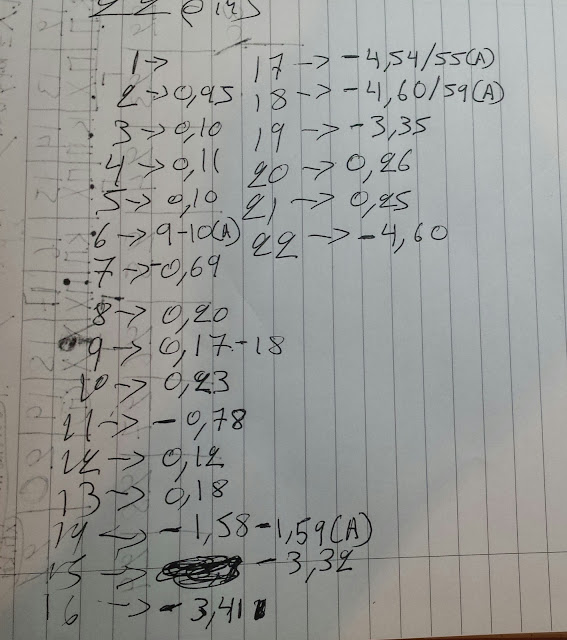 22 pin
1 →
2 → 0,25
3 → 0,10
4 → 0,11
5 → 0,10
6 → 9-10(A)
7 → -0,69
8 → 0,20
9 → 0,17-18
10 → 0,23
11 → -0,78
12 → 0,12
13 → 0,18
14 → -1,58-1,59(A)
15 → -3,32
16 → -3,41
17 → -4,54/55(A)
18 → -4,60/59(A)
19 → -3,35
20 → 0,26
21 → 0,25
22 → -4,60